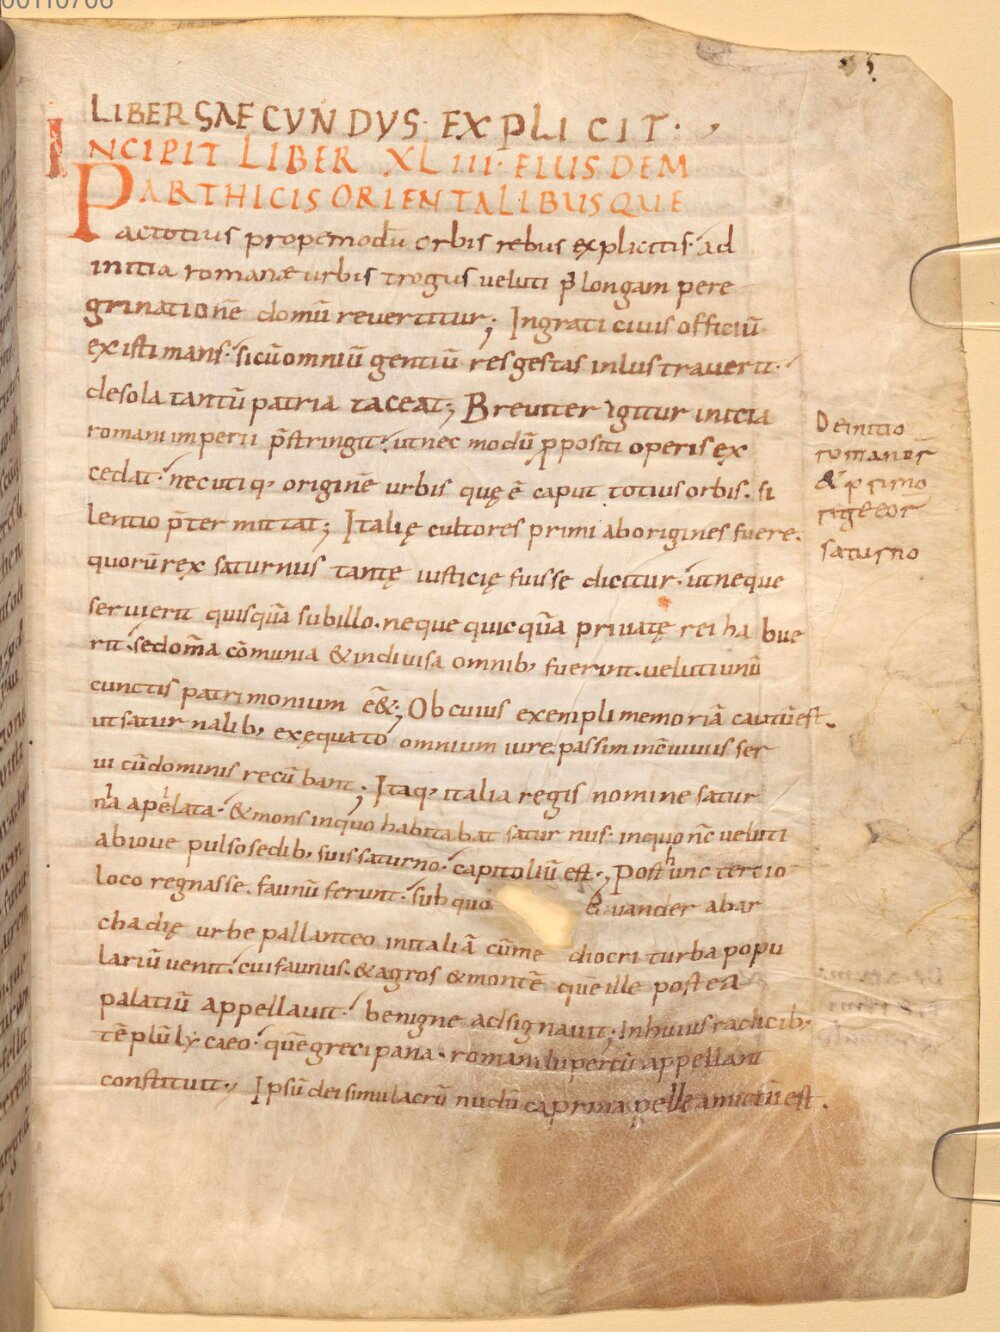 LIBER SAECVNDVS· EXPLICIT·
INCIPIT LIBER XLIII· EIUSDEM
PARTHICIS ORIENTALIBUSQUE
ac totius propemodū orbis rebus explicitis· ad
initia romanæ urbis trogus veluti p̱ longam pere
grinationē domū revertitur; Ingrati civis officiū
existimans· sicū omniū gentiū res gestas inlustraverit·
de sola tantū patria taceat; Breviter igitur initia
romani imperii p̄stringit· ut nec modū ꝓpositi operis ex
cedat· nec utiq; originē urbis quę ē caput totius orbis· si
lentio p̄termittat; Italię cultores primi aborigines fuere·
quorū rex saturnus tantę iusticię fuisse dicitur· ut neque
servierit quisquā sub illo· neque quicquā privatę rei habue
rit· sed om̄a cōmunia & indivisa omnib; fuerint· veluti unū
cunctis patrimonium eē&; Ob cuius exempli memoriā cautū est·
ut saturnalib; exęquato omnium iure passim in cōviviis ser
vi cū dominis recūbant· Itaq; italia regis nomine satur
nia apellata· & mons in quo habitabat saturnus· in quo nc̄ veluti
ab iove pulso sedib; suis saturno· capitoliū est; Post hunc tertio
loco regnasse· faunū ferunt· sub quo &vander ab ar
chadię urbe pallanteo in italiā cū me diocri turba popu
lariū venit· cui faunus· & agros & montē quē ille postea
palatiū appellavit· benigne adsignavit; In huius radicib;
tēplū lycaeo· quē greci pana· romani lupercū appellant
constituit; Ipsū dei simulacrū nudū caprina pelle amictū est·
De initio
romanor
& p̱ primo
rege eor
saturno